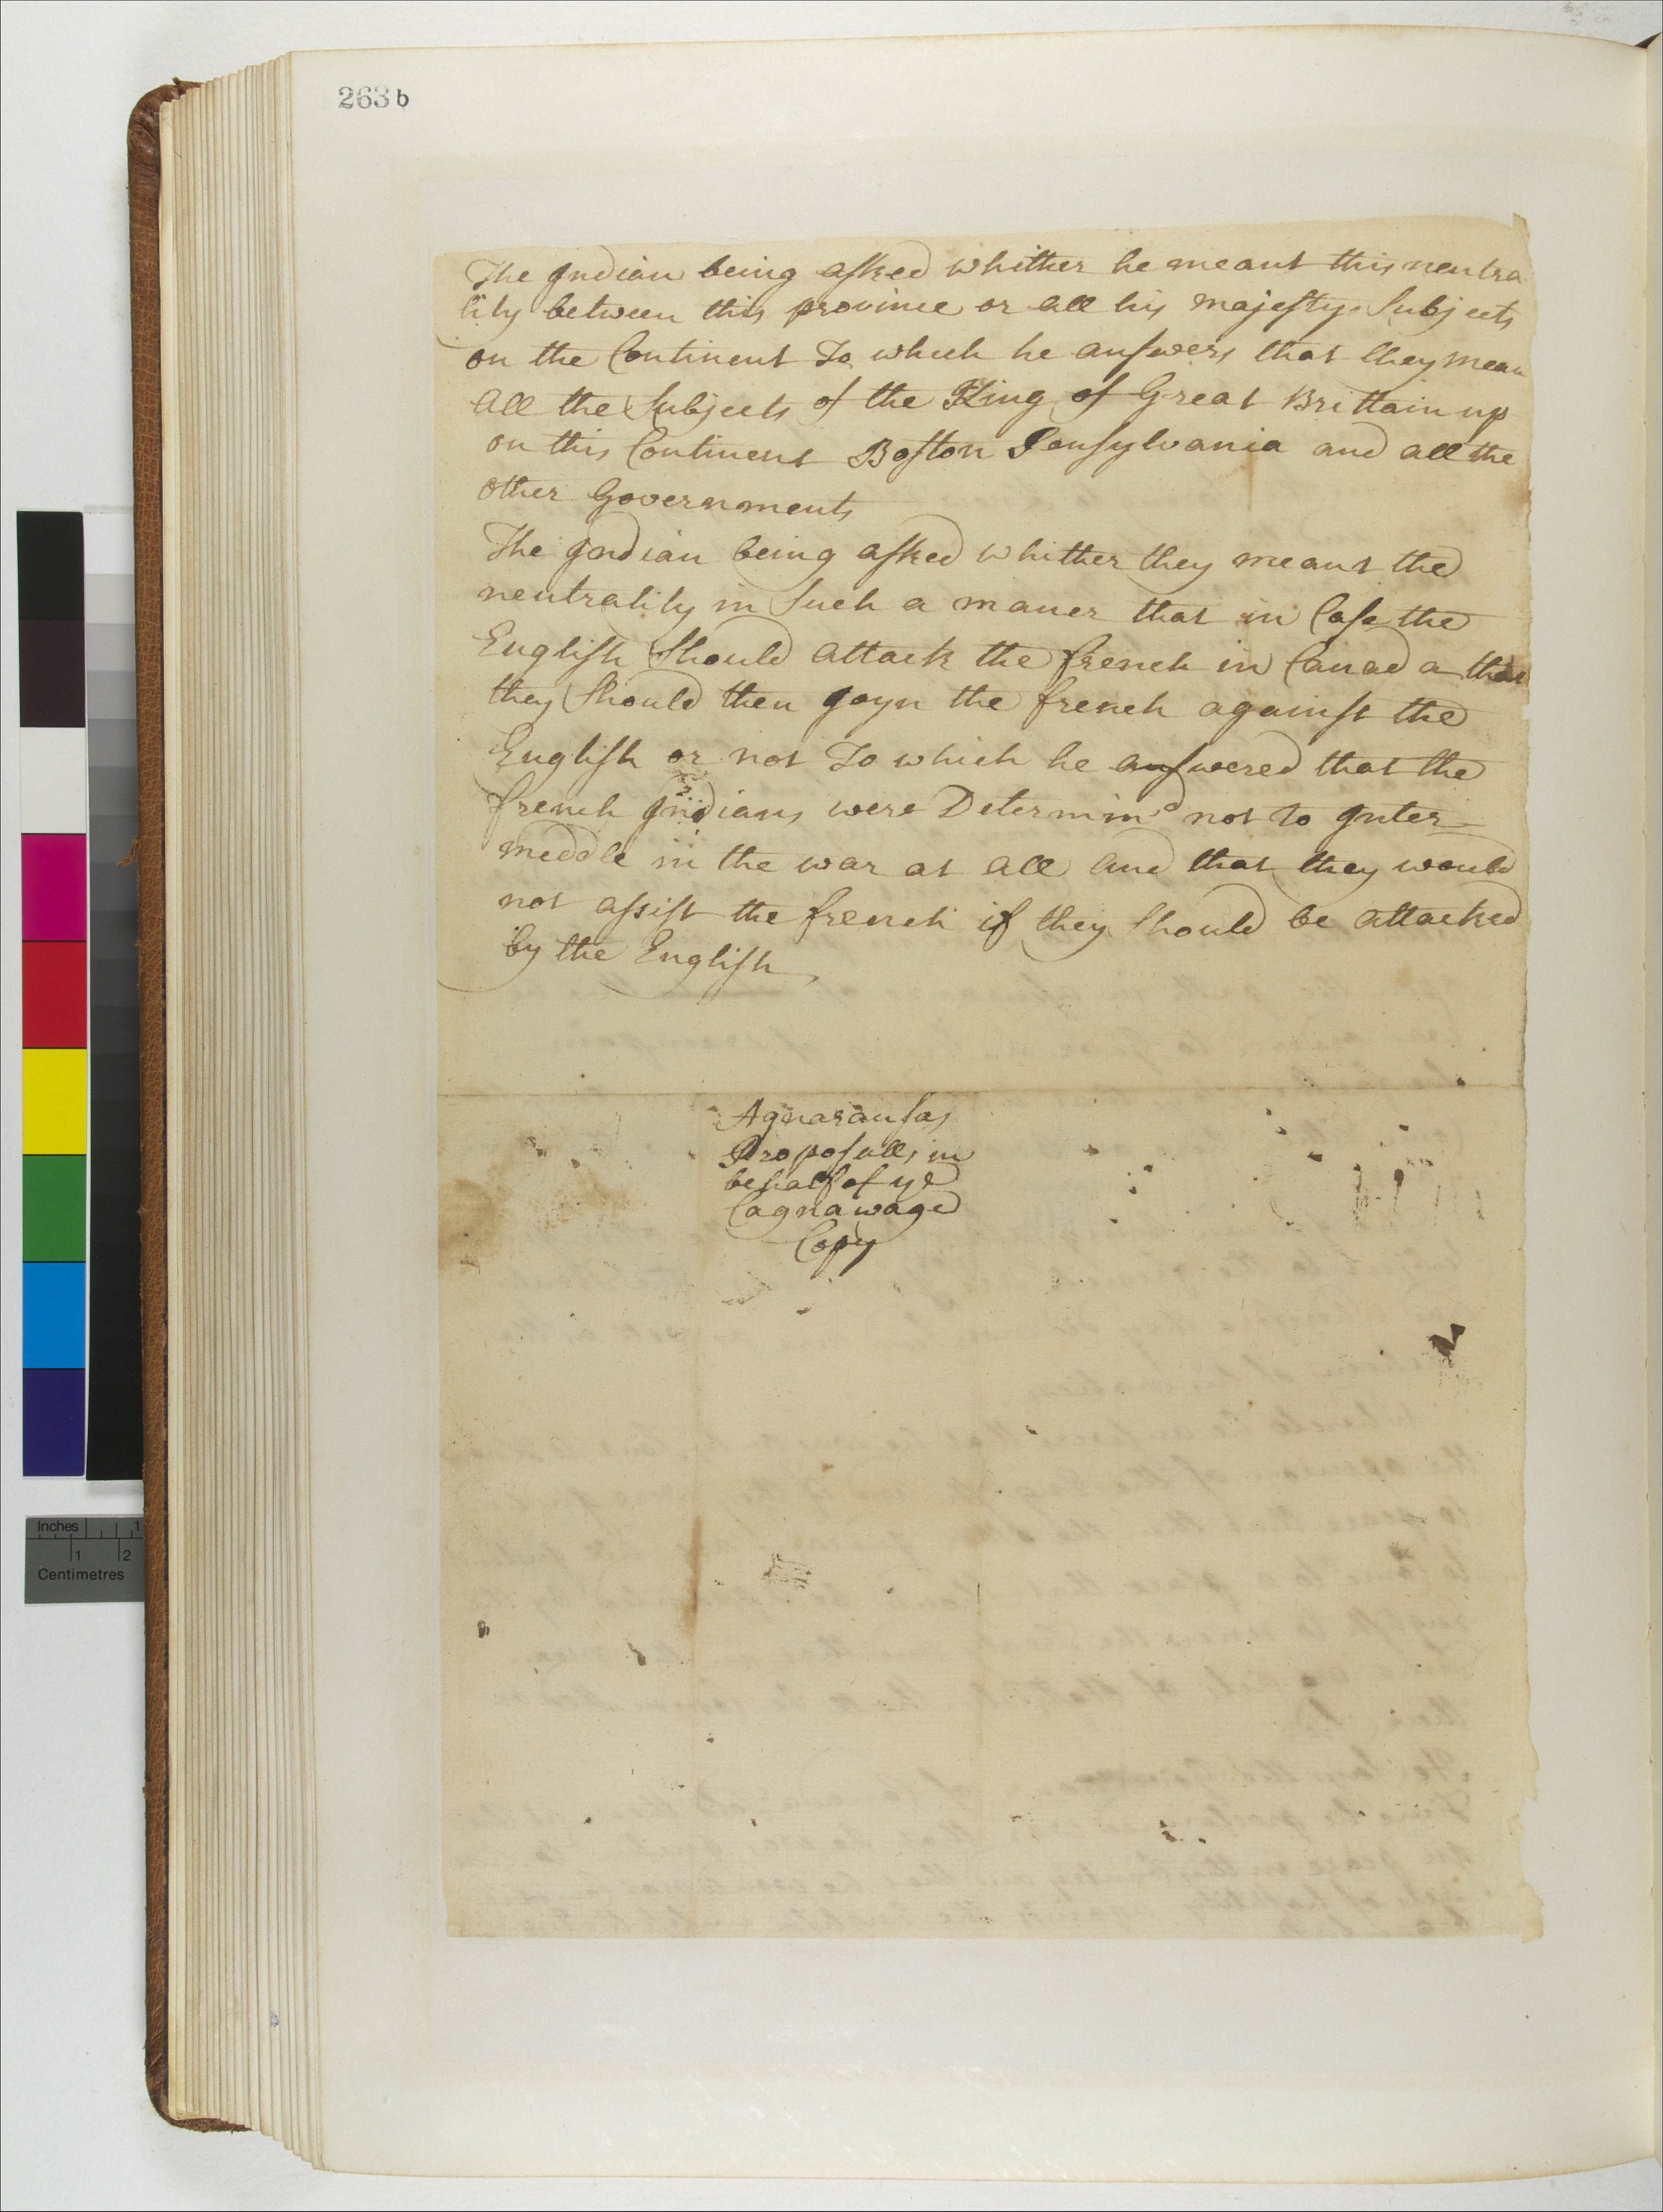 263 b
The Indian being asked whither he meant this neutra
lity between this province or all his majestys Subjects
on the Continent To which he answers that they mean
all the Subjects of the King of Great Brittain up
on this Continent Boston Pensylvania and all the
other Governments
The Indian being asked whither they meant the
neutrality in Such a maner that in Case the
English Should attack the french in Canada that
they Should then Joyn the french against the
English or not To which he answered that the
french Indians were Determin'd not to Inter
meddle in the war at all and that they would
not assist the french if they Should be attacked
by the English
Aquarausas
Proposalls in
behalf of ye
Cagnawage
Copy
Inches 1
1 2
Centimetres